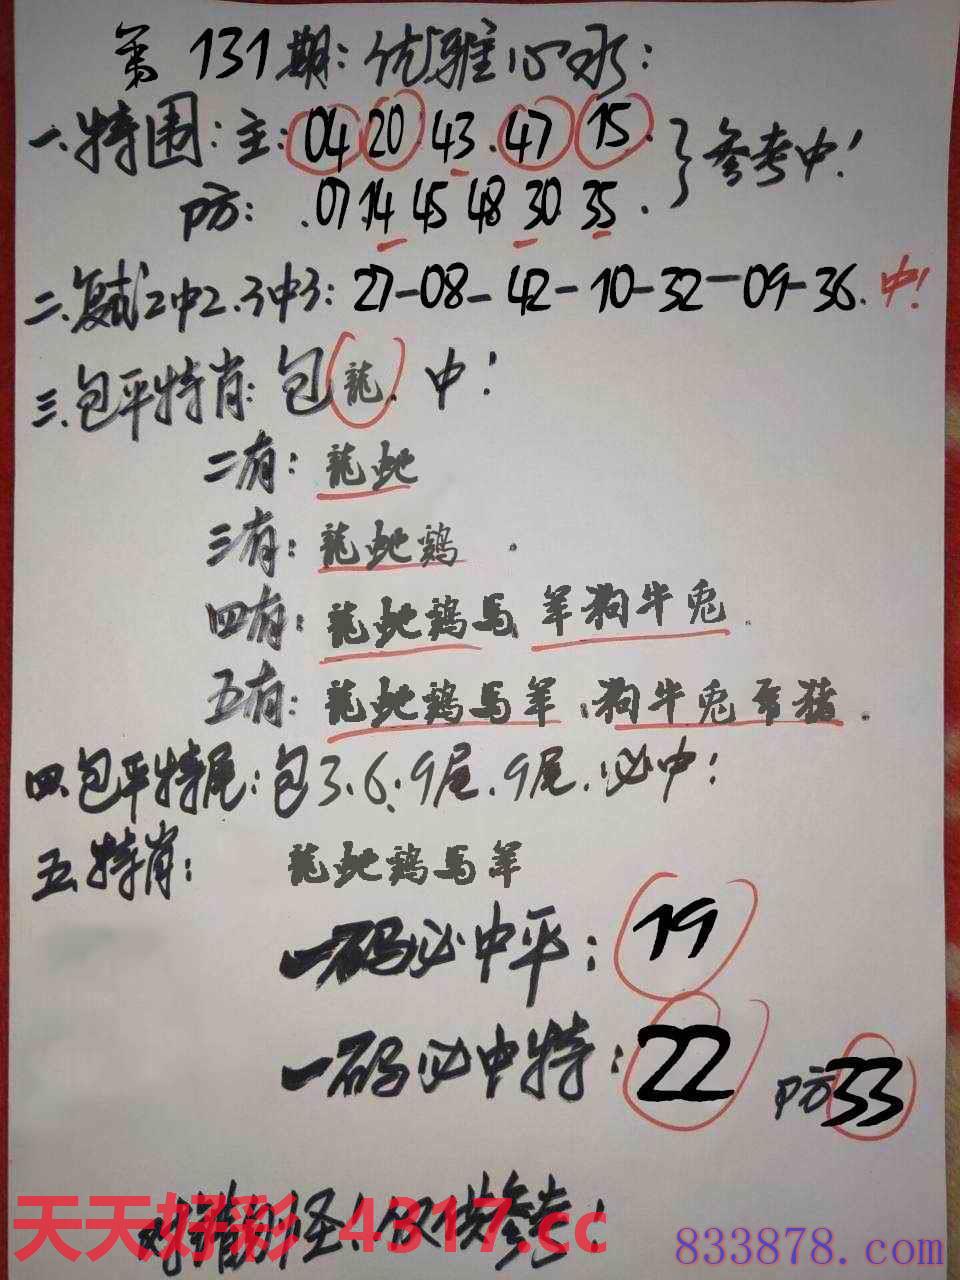 第131期:优雅心水:
一.特围:主:04 20.43.47 15.}参考中!
防:.07.14 45 48 30 35.
二.复试2中2.3中3:27-08-42-10-32-09-36.中!
三.包平特肖:包龍.中!
二有:龍蛇
三有:龍蛇鶏.
四有:龍蛇鶏馬、羊狗牛兎.
五有:龍蛇鶏馬羊、狗牛兎
猪.
四.包平特尾:包3.6.9尾.9尾.必中!
五.特肖:龍蛇鶏馬羊
一码必中平:19
一码必中特:22 防33
对错别怪!仅供参考!
天天好彩 4317.cc
833878.com